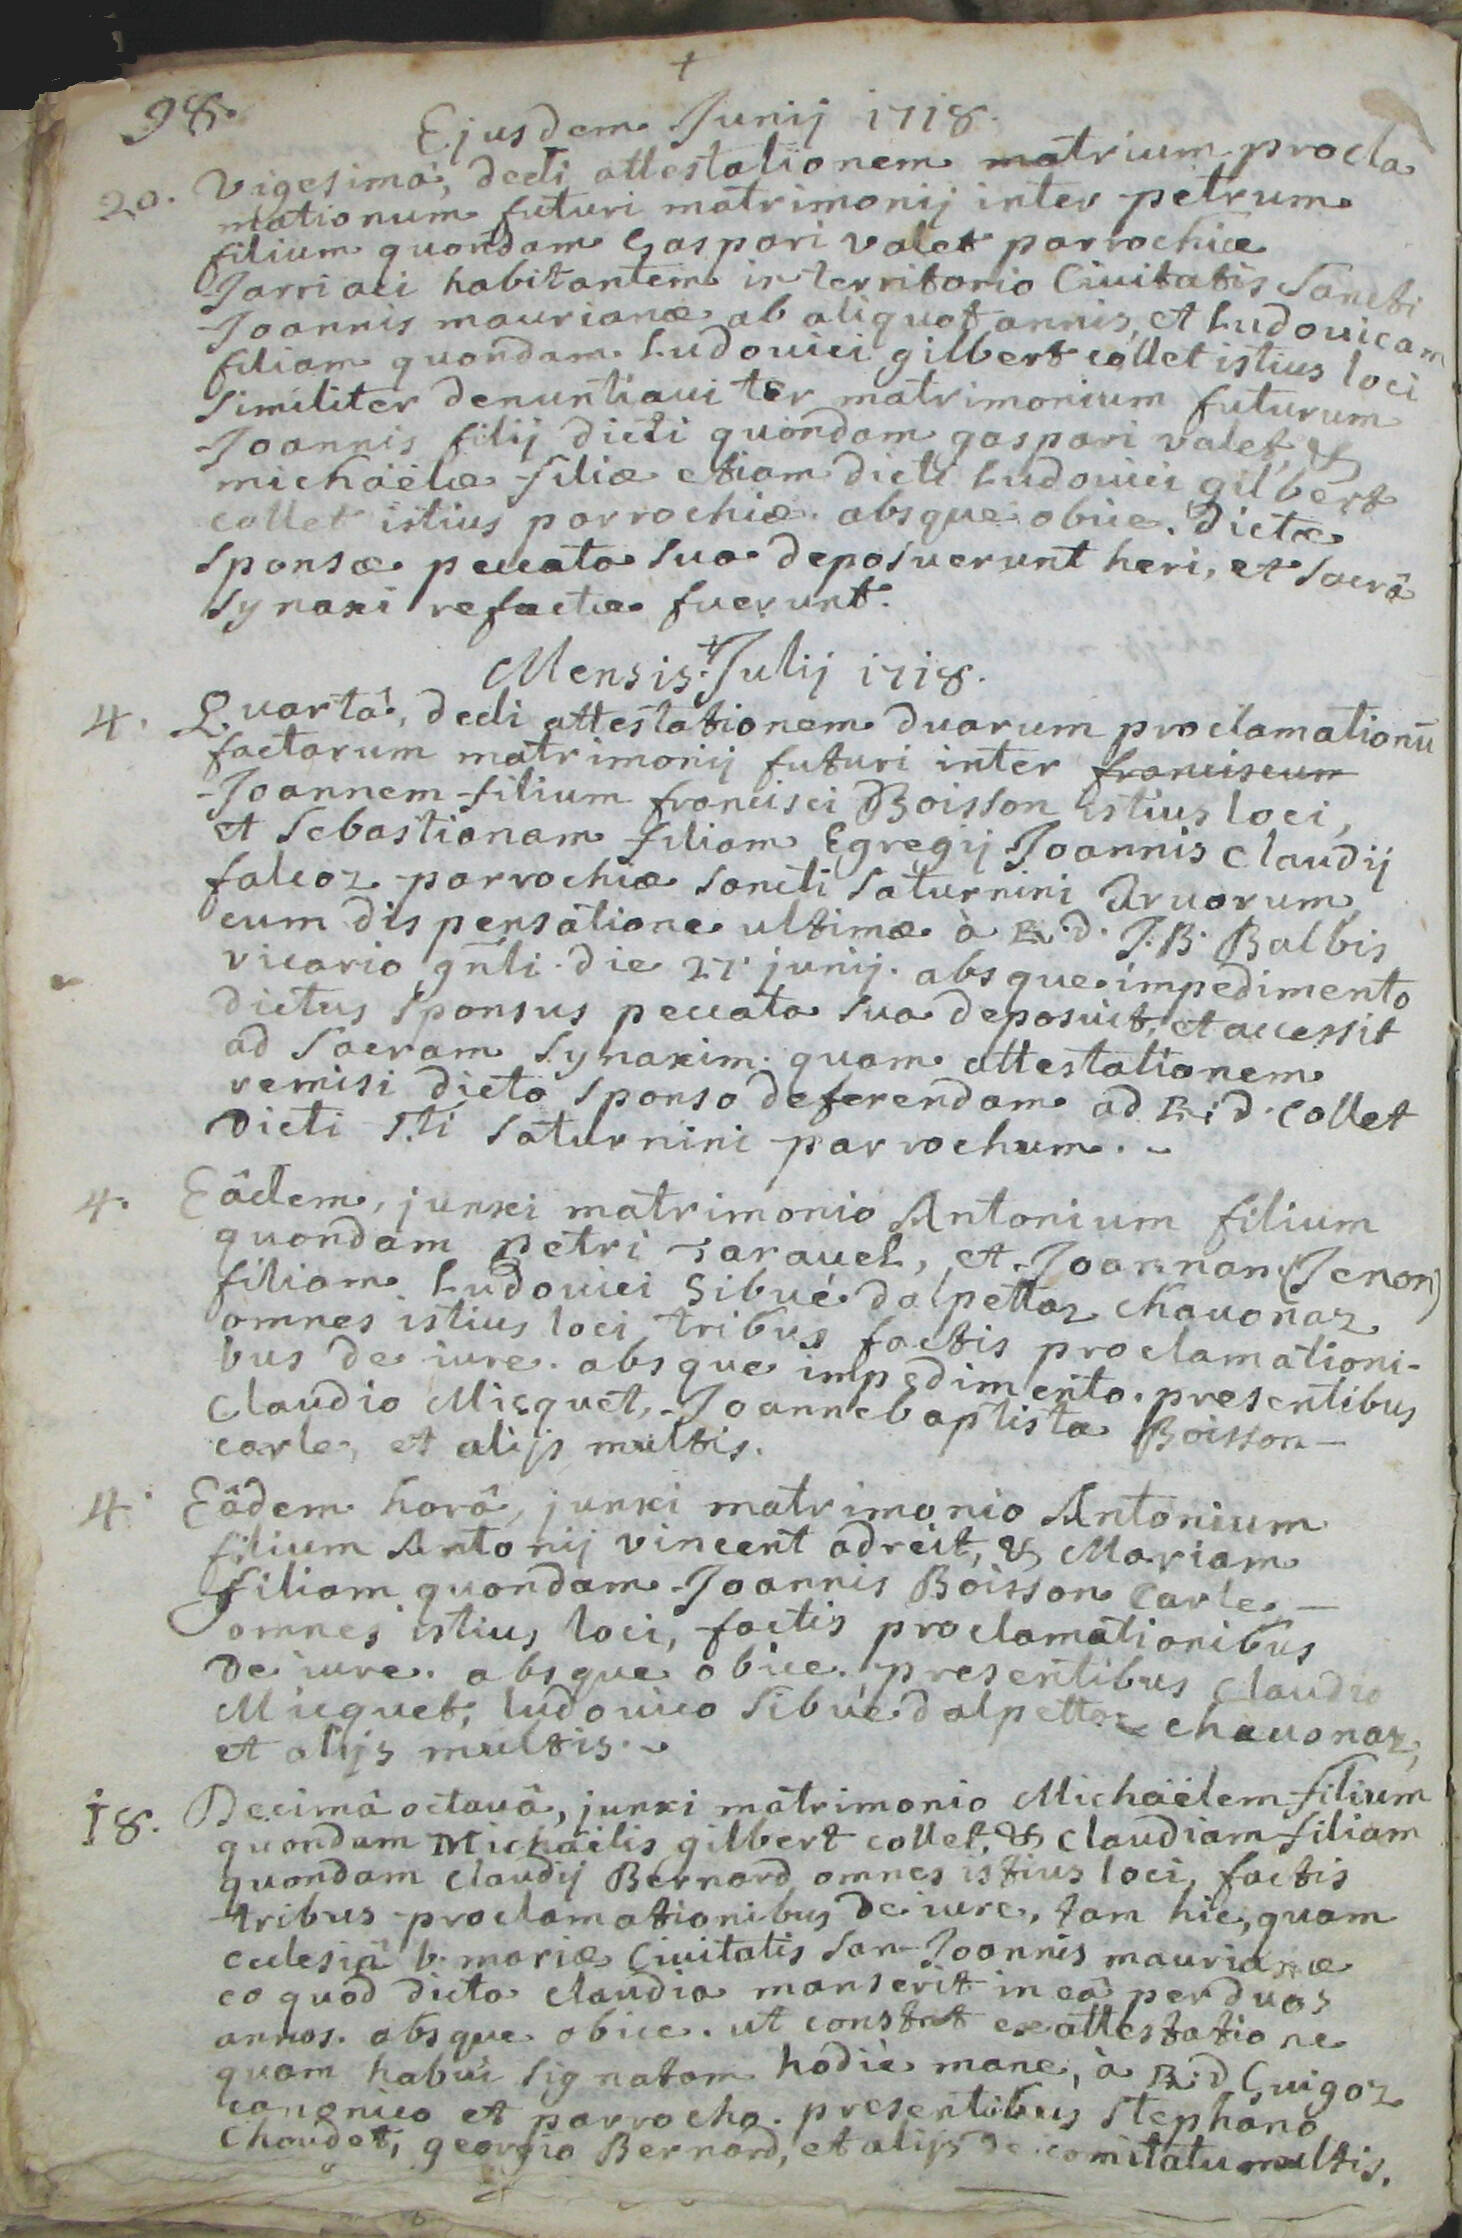 98.
+
Ejusdem Junij 1718.
20. Vigesimâ, dedi attestationem matrium procla
mationum futuri matrimonij inter petrum
filium quondam Gaspari Valet parrochiæ
Jarriaci habitantem in territorio Civitatis Sancti
Joannis maurianæ ab aliquot annis, et Ludovicam
filiam quondam Ludouici gilbert collet istius loci
Similiter denuntiaui ter matrimonium futurum
Joannis filij dicti quondam gaspari valet, &
michaëlæ filiæ etiam dicti Ludouici gilbert
collet istius parrochiæ. absque obice. Dictæ
sponsæ peccata sua deposuerunt heri, et sacrâ
synaxi refectæ fuerunt.
+
Mensis Julij 1718.
4. Quartâ, dedi attestationem duarum proclamationū
factarum matrimonij futuri inter franciscum
Joannem filium francisci Boisson istius loci,
et Sebastianam filiam Egregij Joannis Claudij
falcoz parrochiæ Sancti Saturnini Aruorum
cum dispensatione ultimæ à R.d. J.B. Balbis
vicario gñli die 27 junij. absque impedimento
dictus sponsus peccata sua deposuit, et accessit
ad Sacram Synaxim. quam attestationem
remisi dicto sponso deferendam ad R.d. Collet
Dicti S.ti Saturnini parrochum.
4. Eâdem, junxi matrimonio Antonium filium
quondam Petri Tarauel, et Joannan (Jenon)
filiam Ludouici Sibué dalpettaz chauonaz
omnes istius loci, tribus factis proclamationi-
bus de iure. absque impedimento. presentibus
Claudio Micquet, Joannebaptista Boisson—
carle, et alijs multis.
4. Eâdem horâ, junxi matrimonio Antonium
filium Antonij vincent adreit, & Mariam
filiam quondam Joannis Boisson Carle,—
omnes istius loci, factis proclamationibus
De iure. absque obice. presentibus Claudio
Micquet, ludouico Sibué dalpettaz chauonaz,
et alijs multis.
18. Decimâ octauâ, junxi matrimonio Michaëlem filium
quondam Michaëlis gilbert collet, & Claudiam filiam
quondam Claudij Bernard omnes istius loci, factis
tribus proclamationibus de iure, tam hic, quam
ecclesiâ b. mariæ Ciuitatis San-Joannis maurianæ
eo quod dicta Claudia manserit in eâ per duos
annos. absque obice. ut constat ex attestatione
quam habui signatam hodie mane, à R.d Guigoz
canonico et parrocho. presentibus Stephano
Chaudet, georgio Bernard, et alijs de comitatu multis.